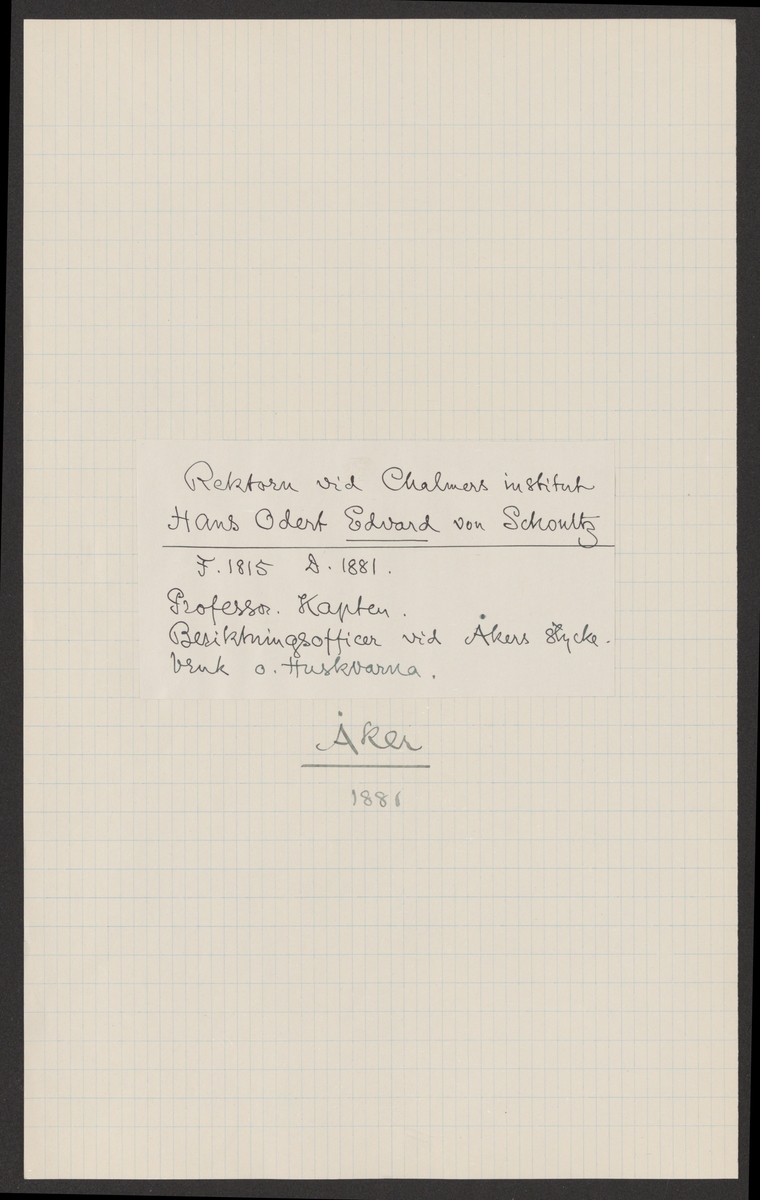 Rektorn vid Chalmers institut
Hans Odert Edvard von Schoultz
F. 1815 D. 1881.
Professor. Kapten.
Besiktningsofficer vid Åkers stycke-
bruk o. Huskvarna.
Åker
1881